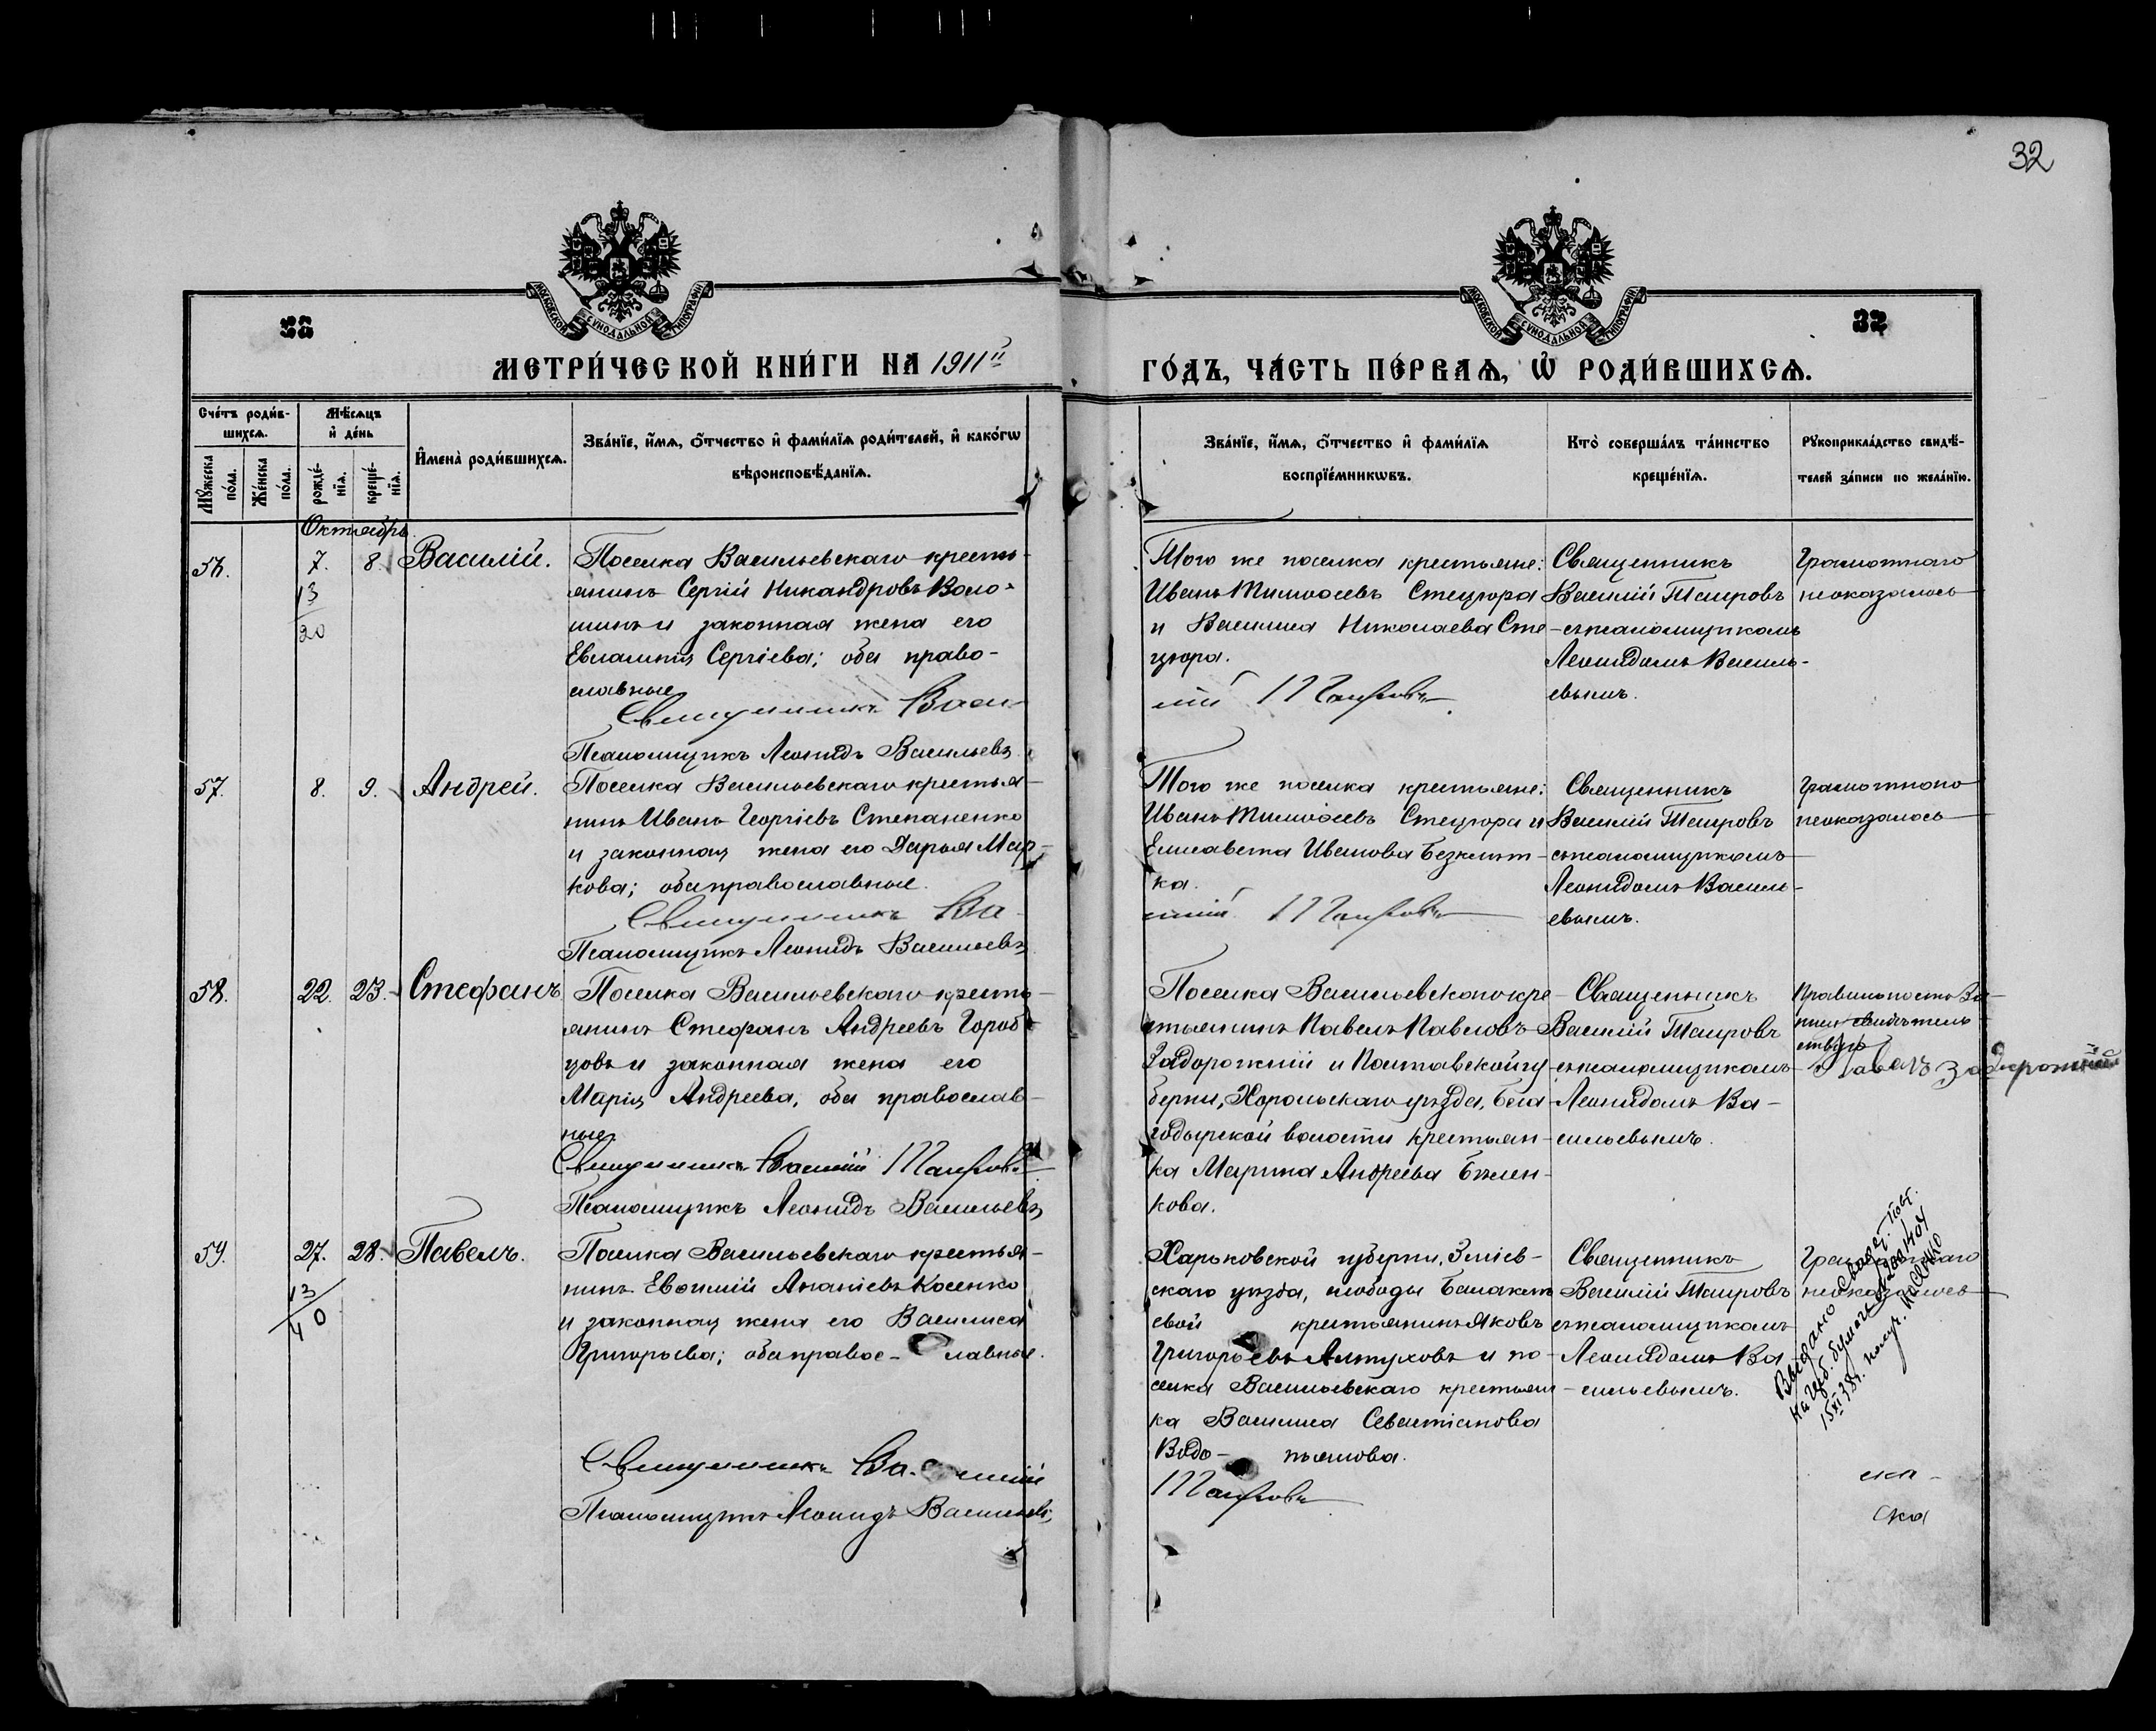 32
32
32
МОСКОВСКОЙ СѴНОДАЛЬНОЙ ТИПОГРАФІИ
МОСКОВСКОЙ СѴНОДАЛЬНОЙ ТИПОГРАФІИ
МЕТРИ́ЧЕСКОЙ КНИ́ГИ НА 1911й
ГО́ДЪ, ЧА́СТЬ ПЕ́РВАѦ, Ѡ҆ РОДИ́ВШИХСѦ.
Сче́тъ роди́в-
шихсѧ.
Мꙋ́жеска по́ла.
Же́нска по́ла.
Мѣ́сѧцъ
и҆ де́нь
рожде́-
нїѧ.
креще́-
нїѧ.
И҆мена̀ роди́вшихсѧ.
Зва́нїе, и҆́мѧ, ѻ҆́тчество и҆ фами́лїѧ роди́телей, и҆ како́гѡ
вѣроисповѣ́данїѧ.
Зва́нїе, и҆́мѧ, ѻ҆́тчество и҆ фами́лїѧ
воспрїе́мникѡвъ.
Кто̀ соверша́лъ та́инство
креще́нїѧ.
Рꙋкоприкла́дство свидѣ́-
телей за́писи по жела́нїю.
Октябрь.
56.
7.
8.
13
20
Василій.
Поселка Васильевскаго кресть-
янинъ Сергій Никандровъ Воло-
шинъ и законная жена его
Евлампія Сергіева; оба право-
славные
Священникъ Васи-
Псаломщикъ Леонидъ Васильевъ
Того же поселка крестьяне:
Иванъ Тимоѳеевъ Стецюра
и Василиса Николаева Сте-
цюра.
лій Таировъ.
Священникъ
Василій Таировъ
съ псаломщикомъ
Леонидомъ Василь-
евымъ.
Грамотнаго
не оказалось
57.
8.
9.
Андрей.
Поселка Васильевскаго крестья-
нинъ Иванъ Георгіевъ Степаненко
и законная жена его Дарья Мар-
кова; оба православные.
Священникъ Ва-
Псаломщикъ Леонидъ Васильевъ
Того же поселка крестьяне:
Иванъ Тимоѳеевъ Стецюра и
Елисавета Иванова
ка.
силій Таировъ
Священникъ
Василій Таировъ
съ псаломщикомъ
Леонидомъ Василь-
евымъ.
Грамотного
не оказалось
58.
22.
23.
Стефанъ
Поселка Васильевскаго кресть-
янинъ Стефанъ Андреевъ Гороб-
цовъ и законная жена его
Марія Андреева, оба православ-
ные
Священникъ Василій Таировъ
Псаломщикъ Леонидъ Васильевъ
Поселка Васильевскаго кре-
стьянинъ Павелъ Павловъ
Задорожній и Полтавской гу-
берни, Хорольскаго уѣзда,
волости крестьян-
ка Марина Андреева Бѣлен-
кова.
Священникъ
Василій Таировъ
съ псаломщикомъ
Леонидомъ Ва-
сильевымъ.
Правильность за-
писи свидѣтель
ствую
Павелъ Задорожній
59.
27.
28.
13
40
Павелъ.
Поселка Васильевскаго крестья-
нинъ Евѳимій Ананіевъ Косенко
и законная жена его Василиса
Григорьева; оба православные.
Священникъ Василій
Псаломщикъ Леонидъ Васильевъ
Харьковской губерни, Зміев-
скаго уѣзда, слободы Балакле-
евой крестьянинъ Яковъ
Григорьевъ Алтуховъ и по-
селка Васильевскаго крестьян-
ка Василиса Севастіанова
Водо- пьянова.
Таировъ
Священникъ
Василій Таировъ
съ псаломщикомъ
Леонидомъ Ва-
сильевымъ.
Грамотнаго
не оказалось
Выдано свидет. повт.
на герб. бумаге
15 XI 38 г. Косенко